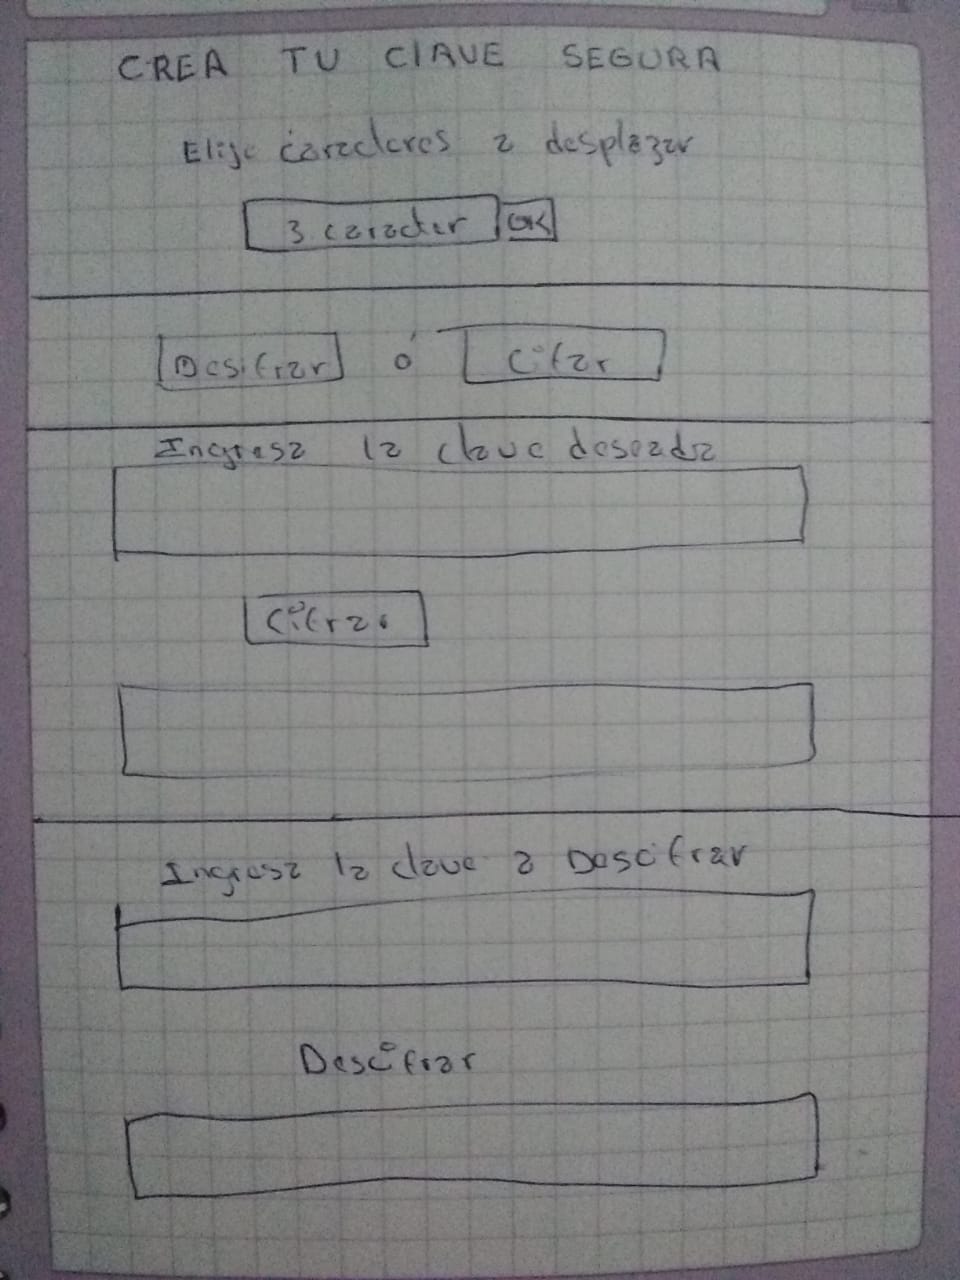 CREA TU ClAVE SEGURA
Elije caracteres a desplazar
3 caracter OK
Desifrar ó Cifar
Ingresa la clave deseada
Cifrar
Ingresa la clave a Descifrar
Descifrar